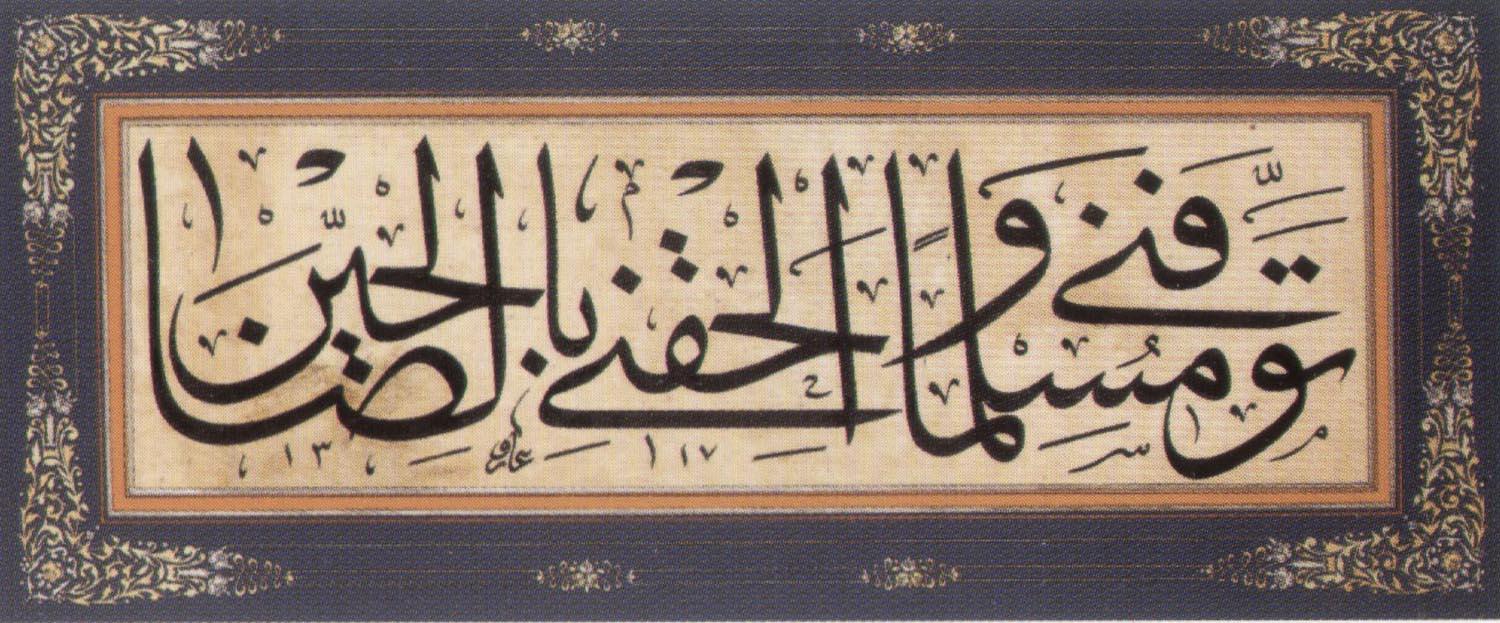 توفنى مسلما والحقنى بالصالحين
عارف